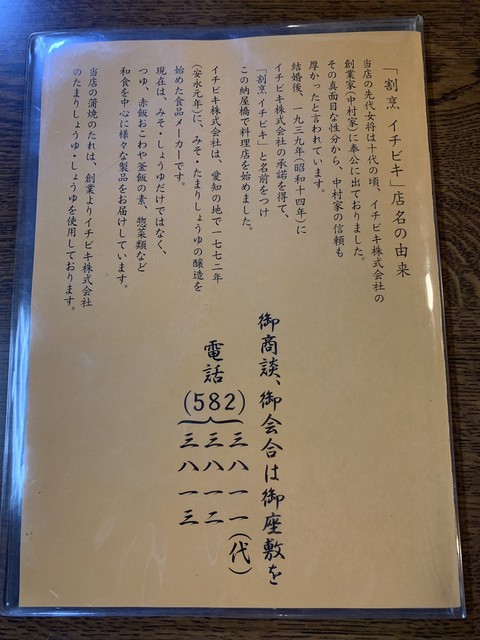 「割烹 イチビキ」店名の由来
当店の先代女将は十代の頃、イチビキ株式会社の
創業家(中村家)に奉公に出ておりました。
その真面目な性分から、中村家の信頼も
厚かったと言われています。
結婚後、一九三九年(昭和十四年)に
イチビキ株式会社の承諾を得て、
「割烹 イチビキ」と名前をつけ
この納屋橋で料理店を始めました。
イチビキ株式会社は、愛知の地で一七七二年
(安永元年)に、みそ・たまりしょうゆの醸造を
始めた食品メーカーです。
現在は、みそ・しょうゆだけではなく、
つゆ、赤飯おこわや釜飯の素、惣菜類など
和食を中心に様々な製品をお届けしています。
当店の蒲焼のたれは、創業よりイチビキ株式会社
のたまりしょうゆ・しょうゆを使用しております。
御商談、御会合は御座敷を
電話(582)
三八一一(代)
三八一二
三八一三